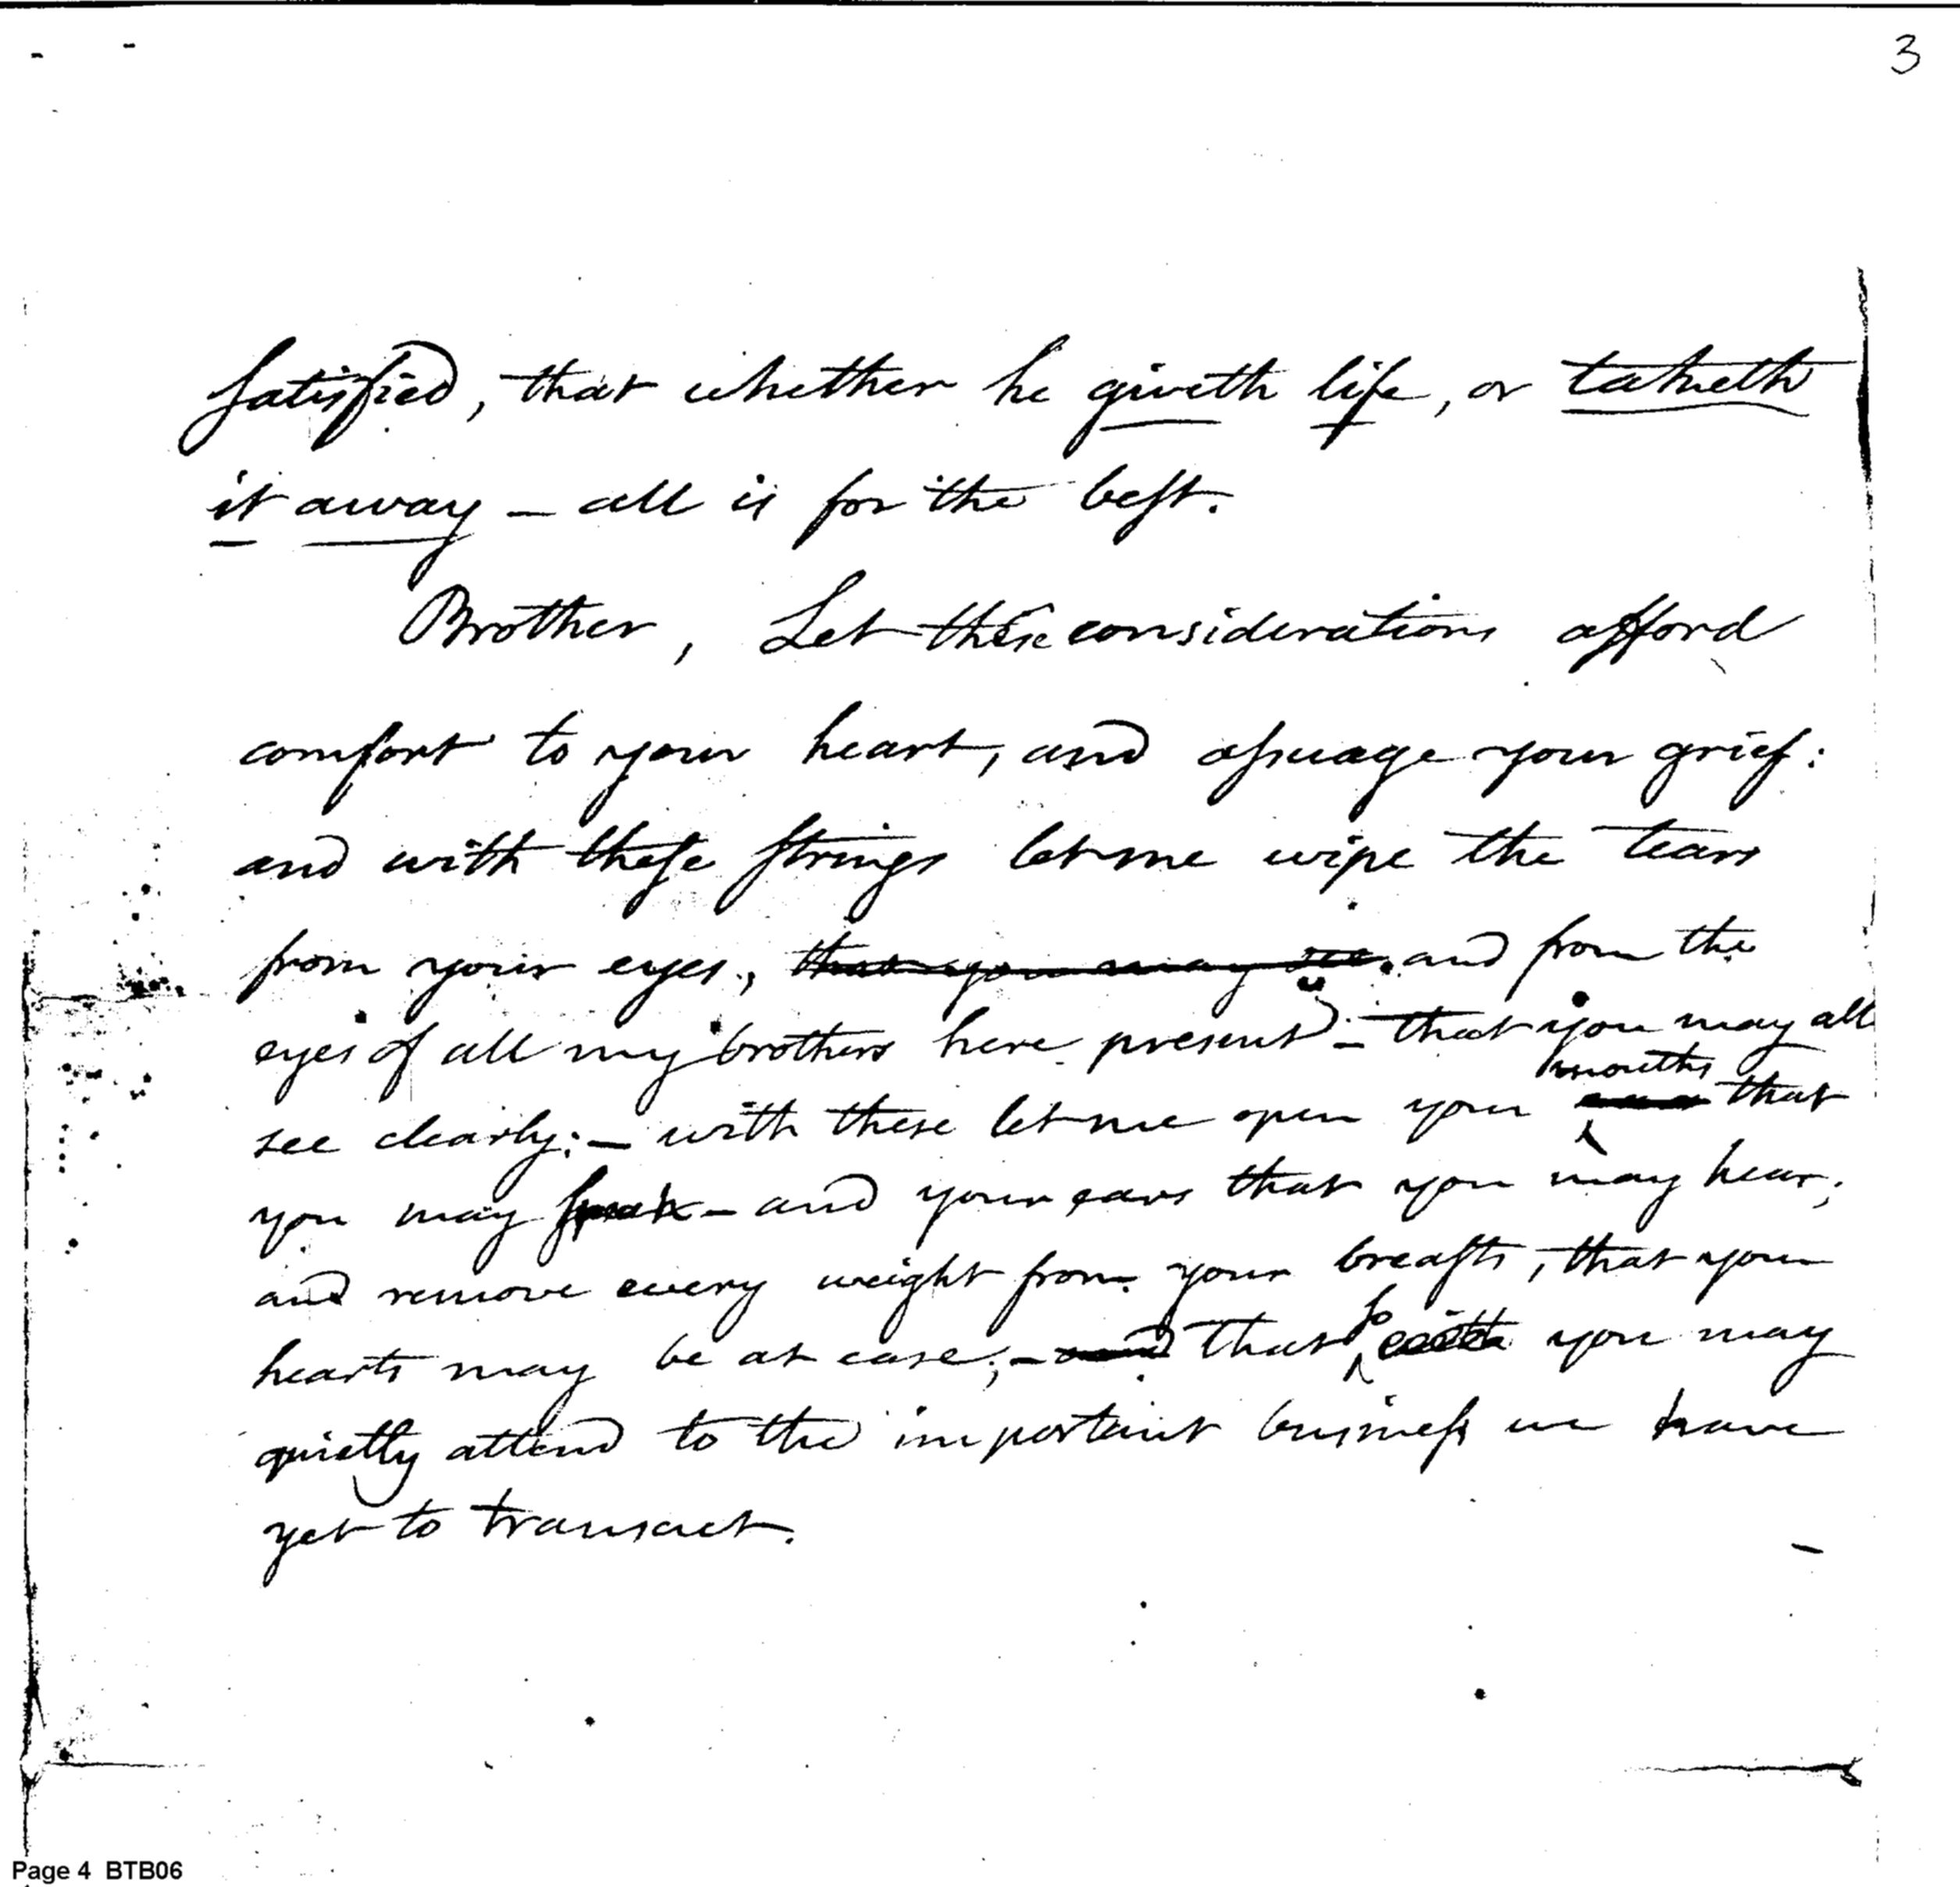 3
satisfied, that whether he giveth life, or taketh
it away – all is for the best.
Brother, Let these considerations afford
comfort to your heart, and assuage your grief:
and with these strings let me wipe the tears
from your eyes, that you may see. and from the
eyes of all my brothers here present – that you may all
mouths
see clearly; – with these let me open your ears that
you may speak – and your ears that you may hear;
and remove every weight from your breasts, that your
so
hearts may be at ease; – and that with you may
quietly attend to the important business we have
yet to transact.
Page 4 BTB06